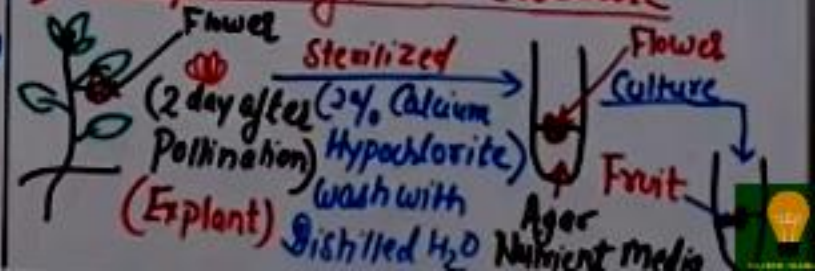 Flower
(2 day after
Pollination)
(Explant)
Sterilized
(2% Calcium
Hypochlorite)
wash with
Distilled H₂O
Flower
Agar
Nutrient media
Culture
Fruit